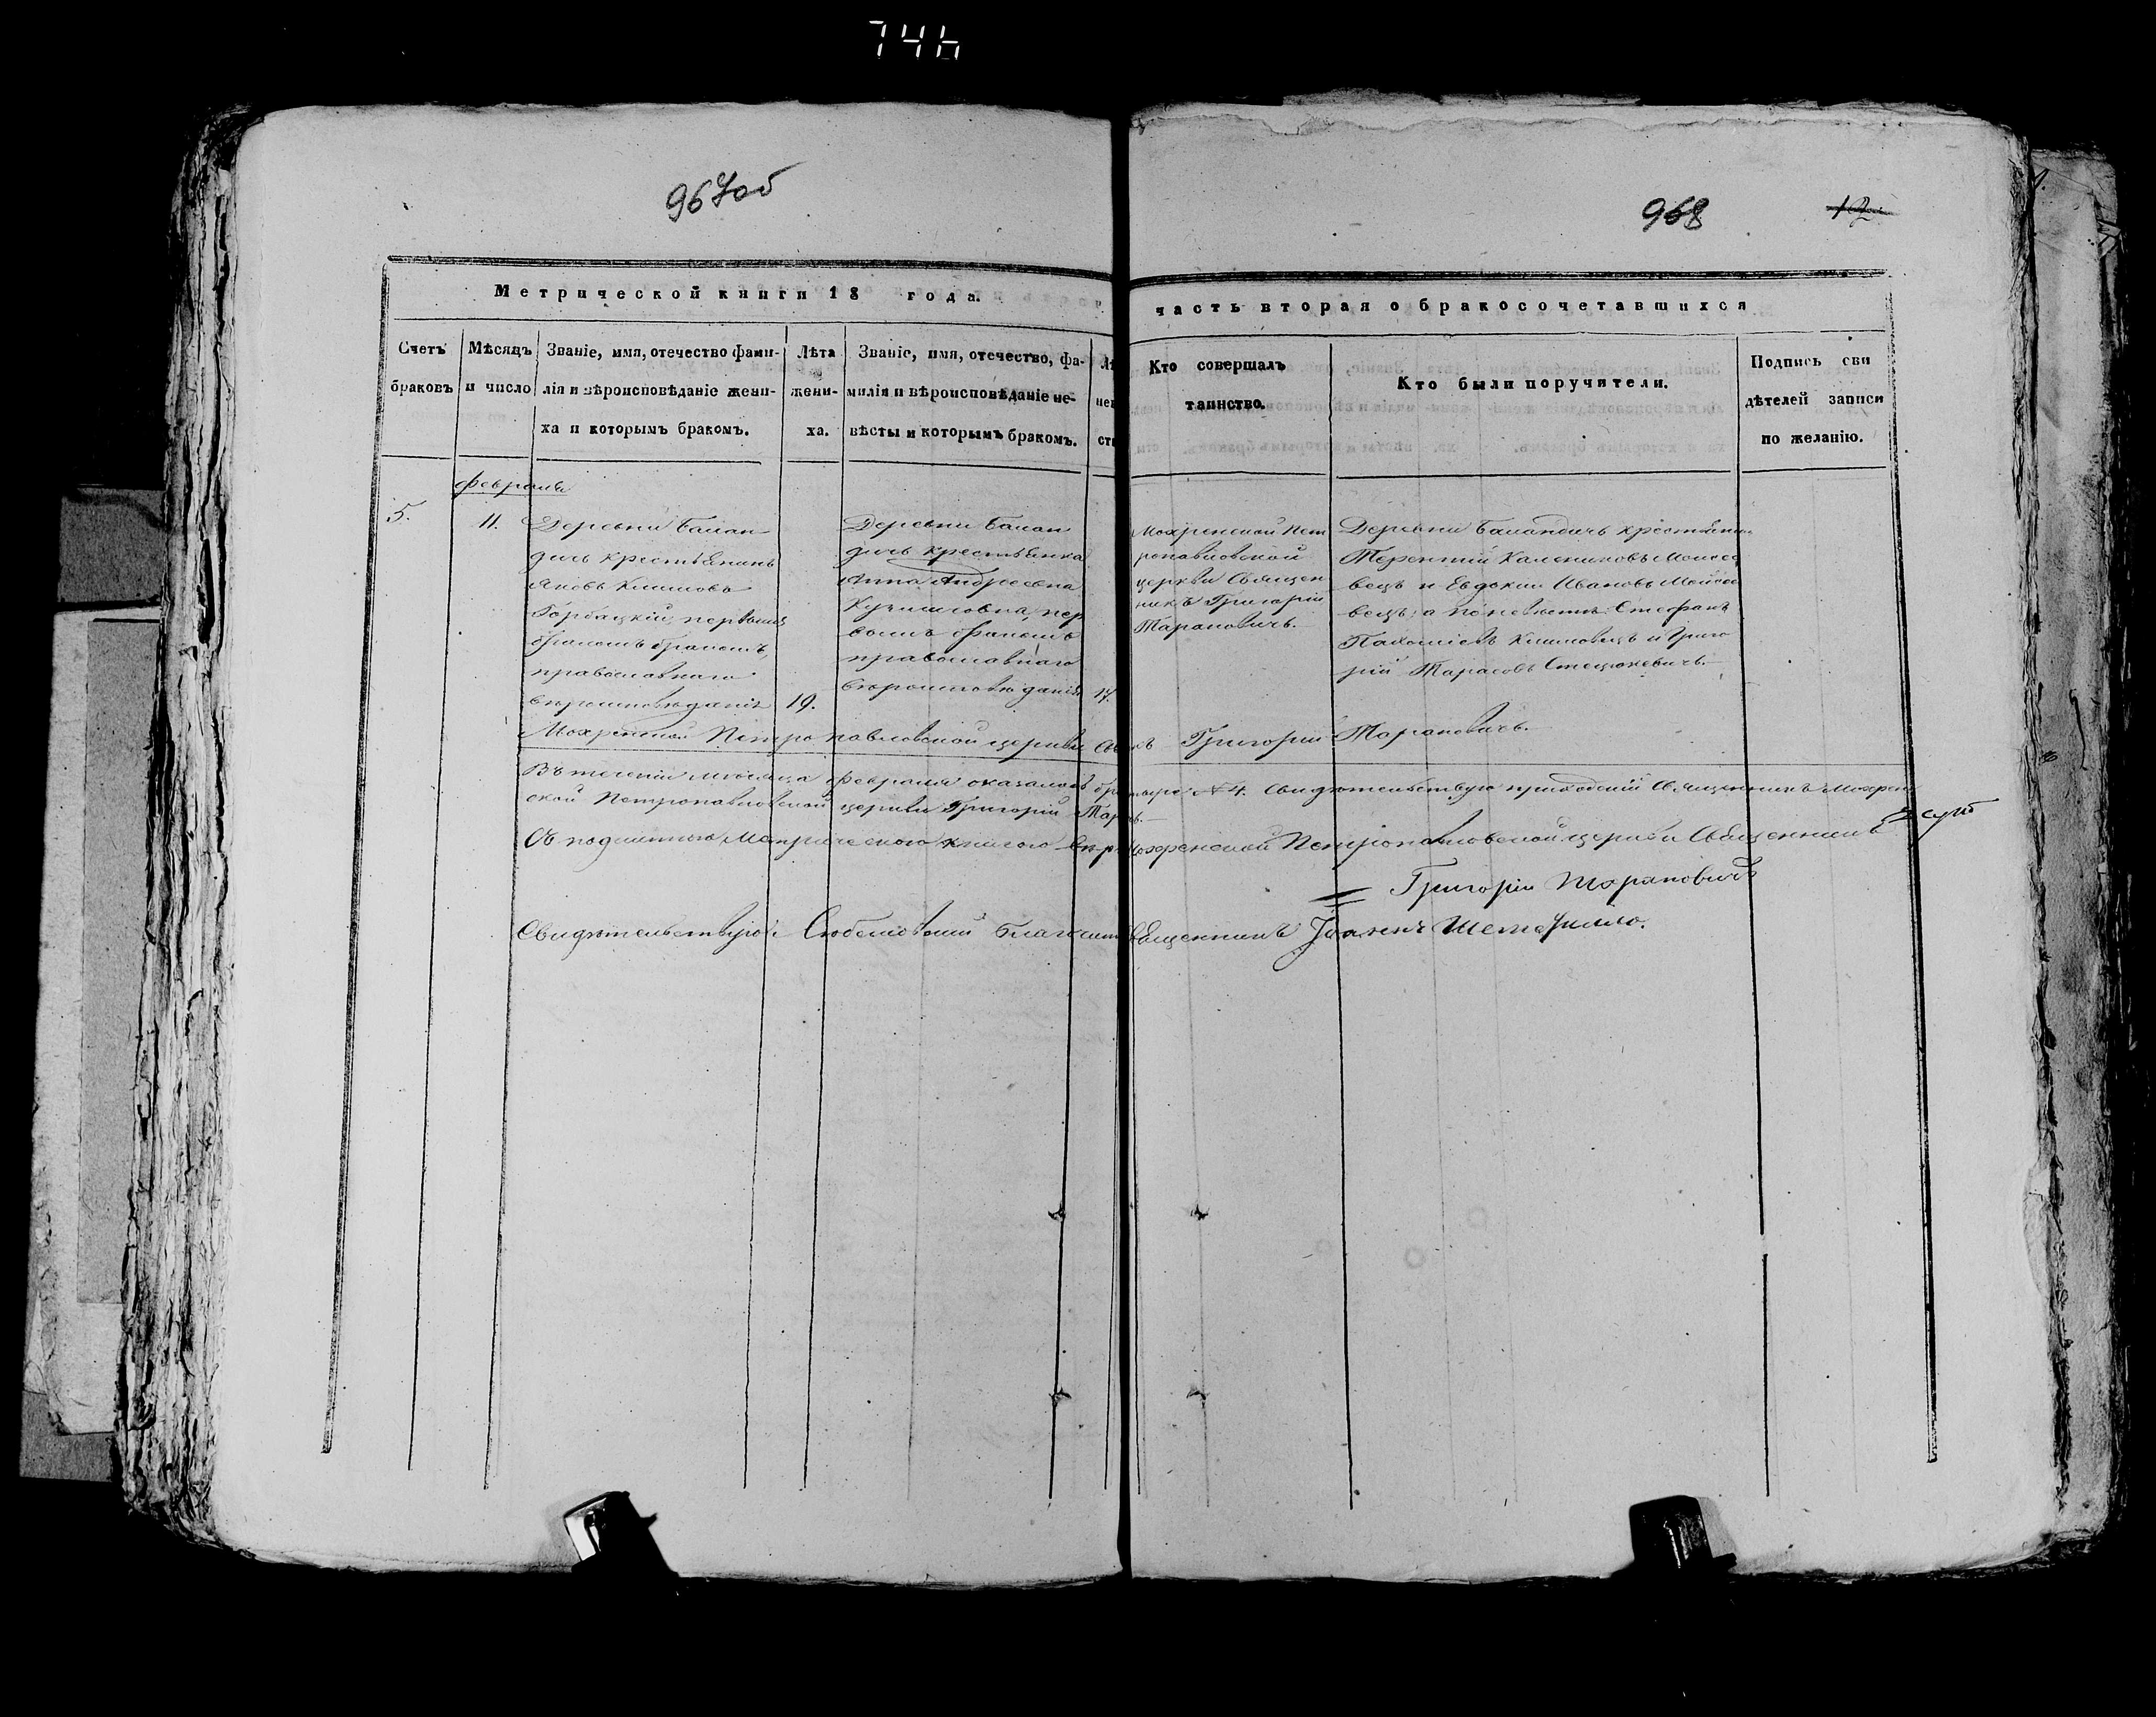 746
967об
968
12
Метрической книги 18 года.
часть вторая о бракосочетавшихся
Счетъ браковъ
Мѣсяцъ и число
Званіе, имя, отечество фами-
лія и вѣроисповѣданіе жени-
ха и которымъ бракомъ.
Лѣта
жени-
ха.
Званіе, имя, отечество, фа-
милія и вѣроисповѣданіе не-
вѣсты и которымъ бракомъ.
Кто совершалъ
таинство.
Кто были поручители.
Подпись сви
дѣтелей записи
по желанію.
Февраль
5.
11.
Деревни Балан
дичъ крестьянинъ
Яковъ Климовъ
Горбацкій, первымъ
бракомъ,
православнаго
вѣроисповѣданія
19.
Деревни Балан
дичъ крестьянка
Анна Андреевна
пер
вымъ бракомъ
православнаго
вѣроисповѣданія
17.
Мохренской Пет
ропавловской
церкви Священ
никъ Григорій
Тарановичъ.
Деревни Баландичъ крестьяне
Терентій Калениковъ Моисее
вецъ и Евдокимъ Ивановъ Моисее
вецъ, а по невѣстѣ: Стефанъ
Пахоміевъ Климовецъ и Григо
рій Тарасовъ Стецюкевичъ.
Мохренской Петропавловской церкви Григорій Тарановичъ.
Въ теченіи мѣсяца февраля оказалось № 4. Свидѣтельствую приходскій Священникъ Мохрен
ской Петропавловской церкви Григорій
Съ подлинною Метрическою книгою Мохренской Петропавловской церкви Священникъ
Григорій Тарановичъ
Свидѣтельствую Священникъ Іоаннъ